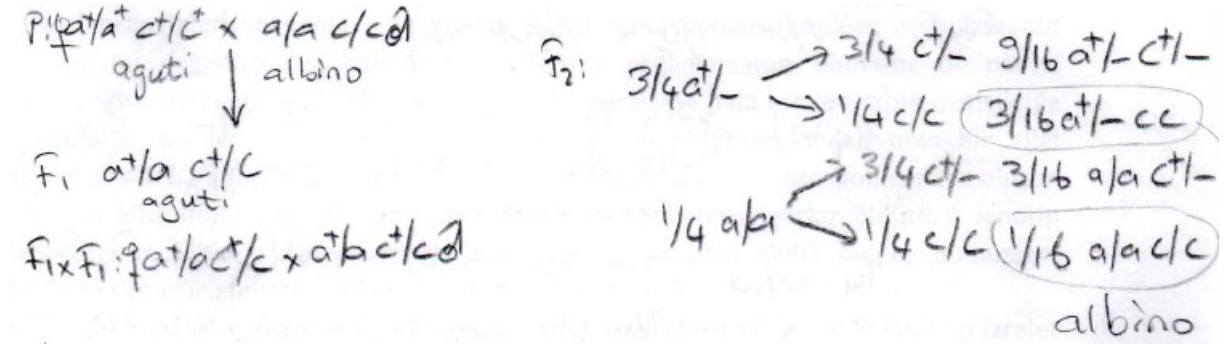 P: ♀ a⁺/a⁺ c⁺/c⁺ x a/a c/c ♂
aguti albino
F₁ a⁺/a c⁺/c
aguti
F₁xF₁: ♀ a⁺/a c⁺/c x a⁺/a c⁺/c ♂
F₂:
3/4 c⁺/- 9/16 a⁺/- c⁺/-
3/4 a⁺/-
1/4 c/c 3/16 a⁺/- cc
3/4 c⁺/- 3/16 a/a c⁺/-
1/4 a/a
1/4 c/c 1/16 a/a c/c
albino